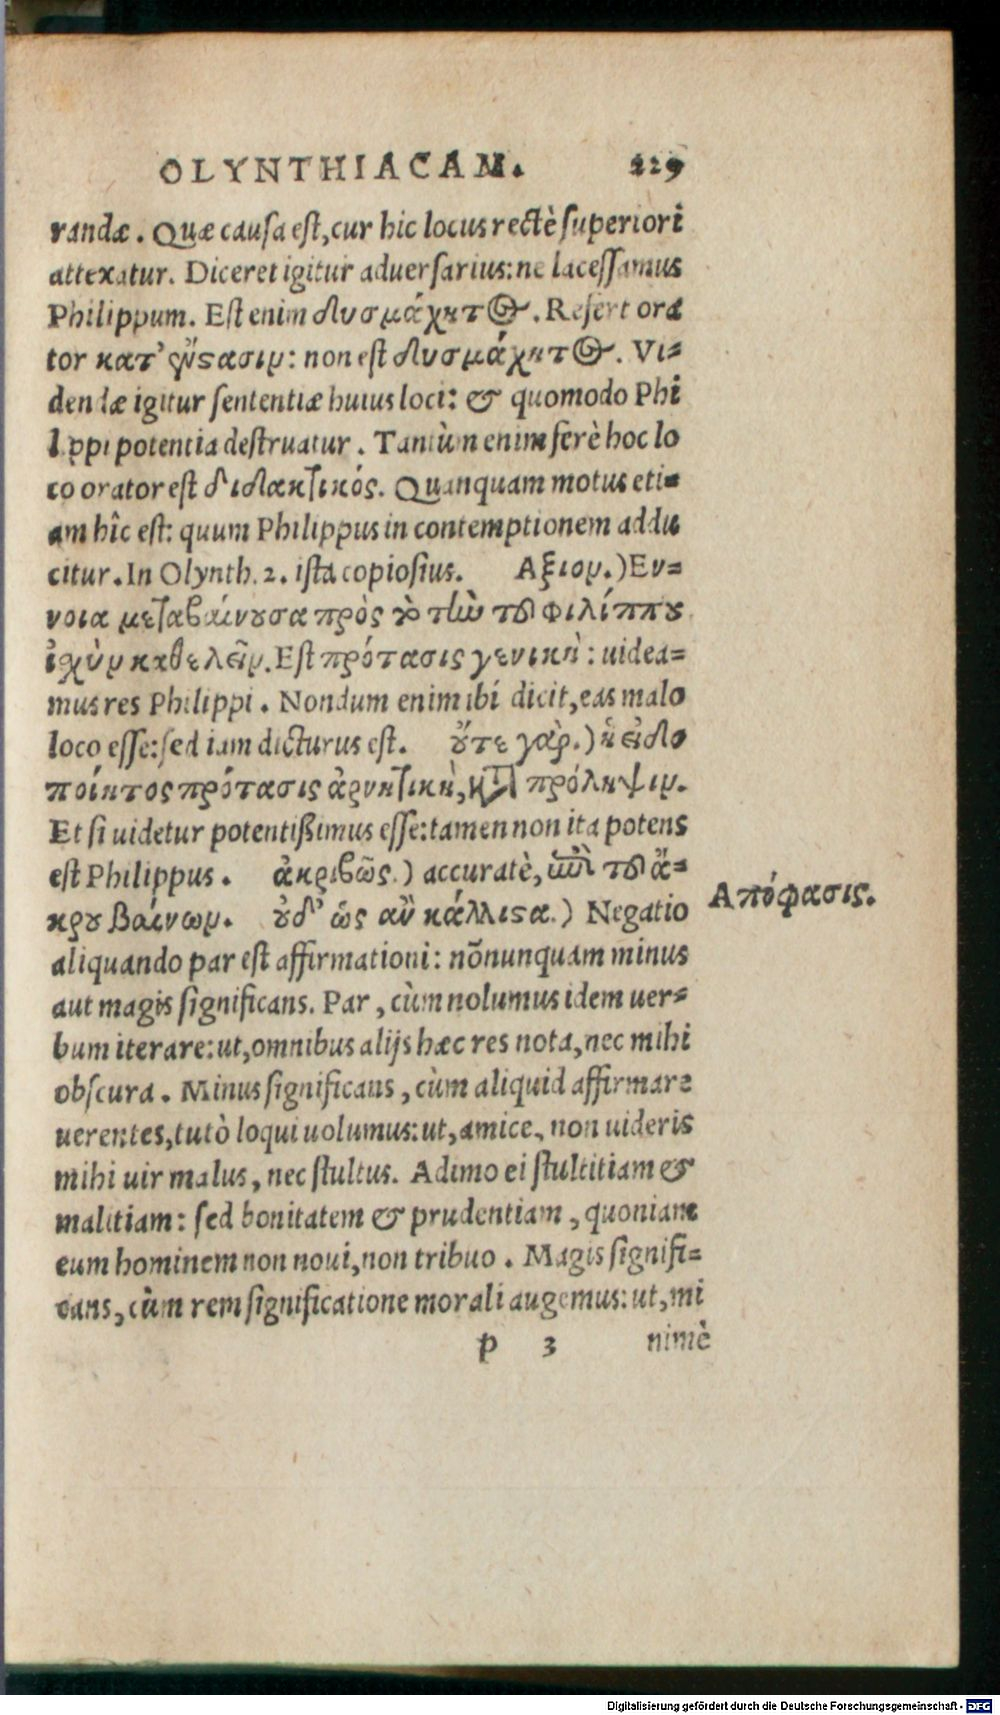 OLYNTHIACAM. 229
randæ. Quæ causa est, cur hic locus rectè superiori
attexatur. Diceret igitur aduersarius: ne lacessamus
Philippum. Est enim δυσμάχητος. Refert ora
tor κατ' ἔνστασιν: non est δυσμάχητος. Vi-
dendæ igitur sententiæ huius loci: & quomodo Phi
lippi potentia destruatur. Tantùm enim ferè hoc lo
co orator est διδακτικός. Quanquam motus eti-
am hîc est: quum Philippus in contemptionem addu
citur. In Olynth. 2. ista copiosius. Αξιον.) Εν-
νοια μεταβαίνουσα πρὸς τὸ τὴν τοῦ φιλίππου
ἰχὺν καθελεῖν. Est πρότασις γενικὴ: uidea-
mus res Philippi. Nondum enim ibi dicit, eas malo
loco esse: sed iam dicturus est. οὔτε γὰρ.) ἡ εἰδο
ποίητος πρότασις ἀρνητικὴ, κατὰ πρόληψιν.
Et si uidetur potentißimus esse: tamen non ita potens
est Philippus. ἀκριβῶς.) accuratè, ἐπὶ τοῦ ἄ-
κρου βαίνων. οὐδ' ὡς ἂν κάλλιστα.) Negatio
Απόφασις.
aliquando par est affirmationi: nõnunquam minus
aut magis significans. Par, cùm nolumus idem uer-
bum iterare: ut, omnibus alijs hæc res nota, nec mihi
obscura. Minus significans, cùm aliquid affirmare
uerentes, tutò loqui uolumus: ut, amice, non uideris
mihi uir malus, nec stultus. Adimo ei stultitiam &
malitiam: sed bonitatem & prudentiam, quoniam
eum hominem non noui, non tribuo. Magis signifi-
cans, cùm rem significatione morali augemus: ut, mi
p 3 nimè
Digitalisierung gefördert durch die Deutsche Forschungsgemeinschaft - DFG